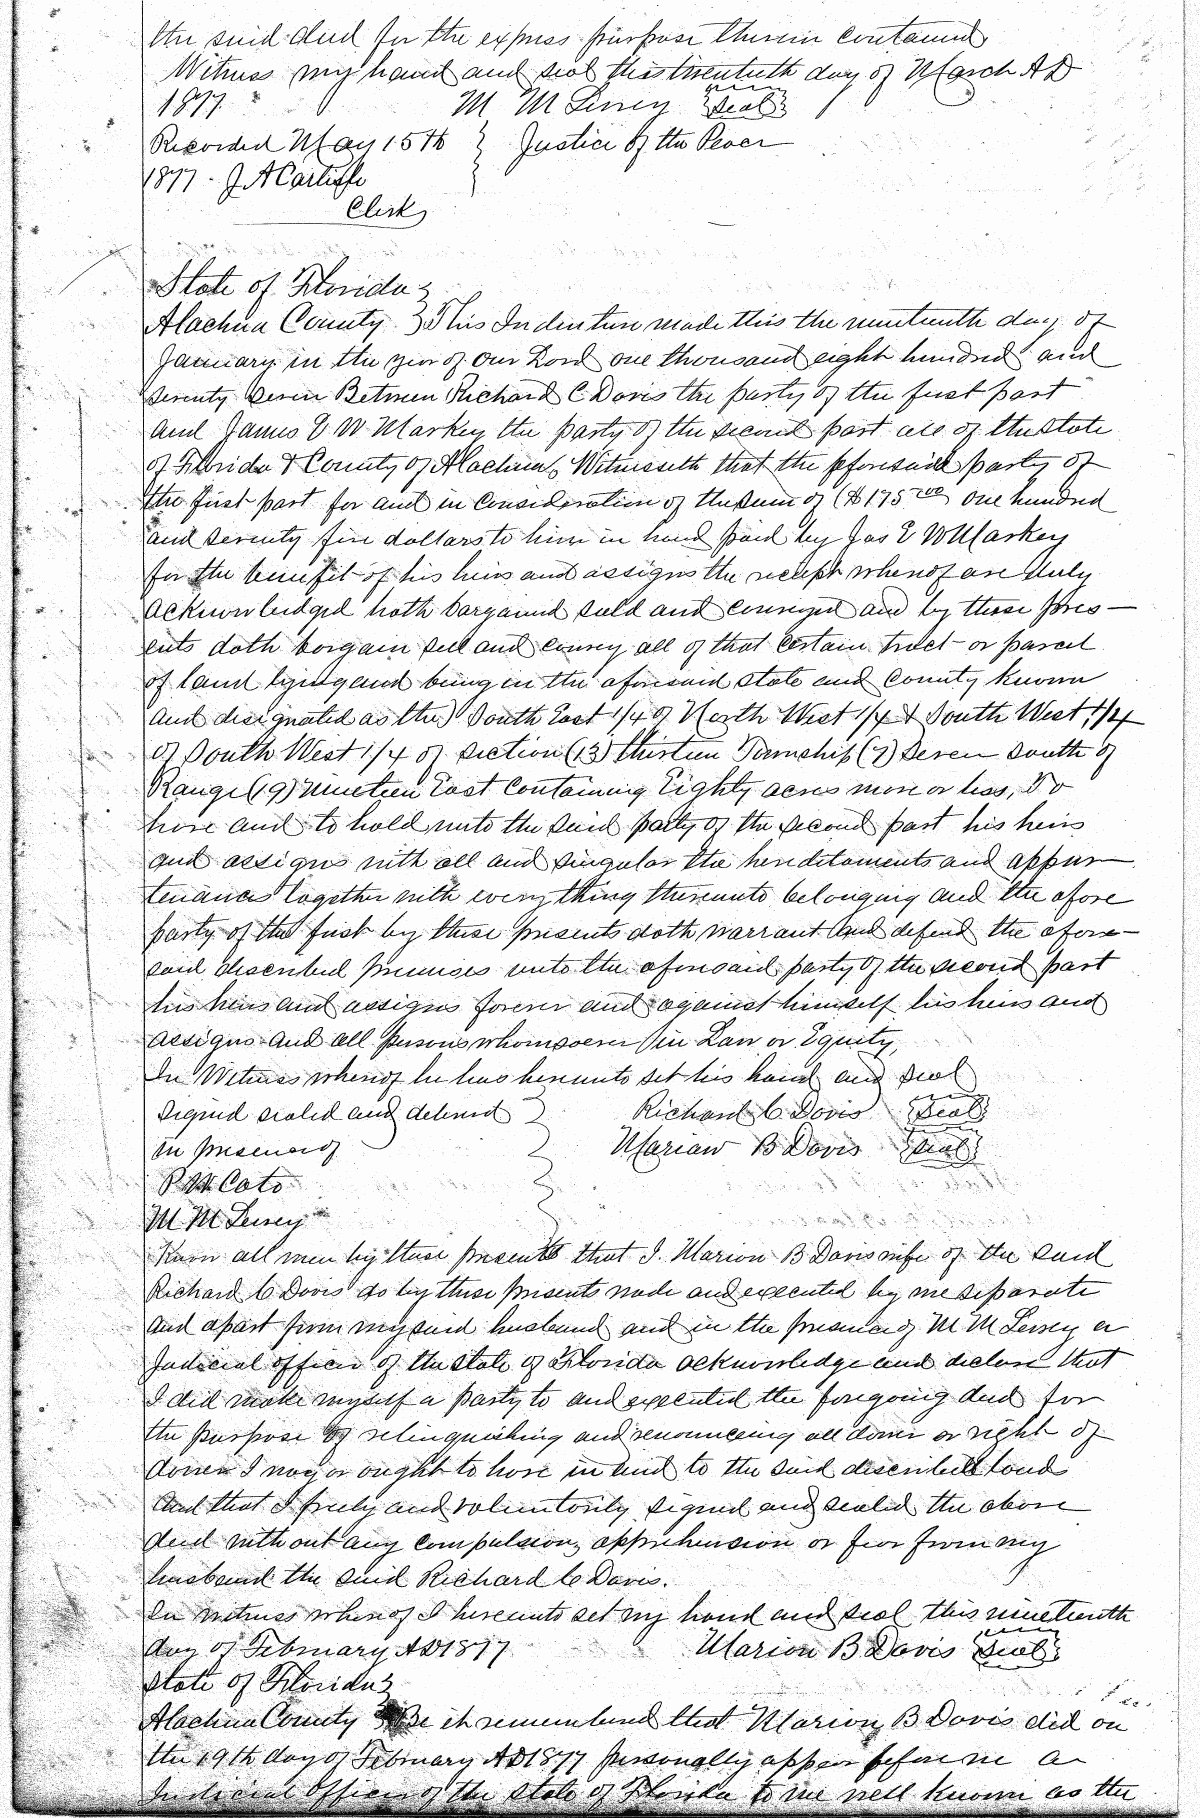 the said deed for the express purpose therein contained
Witness my hand and seal this twentieth day of March AD
1877 M M Seal
Recorded May 15th } Justice of the Peace
1877 - J A Carlisle
Clerk
State of Florida }
Alachua County } This Indenture made this the nineteenth day of
January in the year of our Lord one thousand eight hundred and
seventy seven Between Richard C Davis the party of the first part
and James E W Markey the party of the second part all of the state
of Florida & County of Alachua, Witnesseth that the aforesaid party of
the first part for and in consideration of the sum of ($175 00/100 one hundred
and seventy five dollars to him in hand paid by Jas E W Markey
for the benefit of his heirs and assigns the receipt whereof are duly
acknowledged hath bargained sold and conveyed and by these pres—
ents doth bargain sell and convey all of that certain tract or parcel
of land lying and being in the aforesaid state and County known
and designated as the South East 1/4 of North West 1/4 & South West 1/4
of South West 1/4 of section (13) thirteen Township (7) Seven south of
Range (19) nineteen East containing Eighty acres more or less, To
have and to hold unto the said party of the second part his heirs
and assigns with all and singular the hereditaments and appur
tenances together with everything thereunto belonging and the afore
party of the first by these presents doth warrant and defend the afore—
said described premises unto the aforesaid party of the second part
his heirs and assigns forever and against himself his heirs and
assigns and all persons whomsoever in Law or Equity,
In Witness whereof he has hereunto set his hand and seal
Signed sealed and delivered } Richard C Davis Seal
in presence of Mariaw B Davis Seal
Cato
M M
Know all men by these presents that I. Marion B Davis wife of the said
Richard C Davis do by these presents made and executed by me separate
and apart from my said husband and in the presence of M M a
Judicial officer of the state of Florida acknowledge and declare that
I did make myself a party to and executed the foregoing deed for
the purpose of relinquishing and renouncing all dower or right of
dower I may or ought to have in and to the said described land
And that I freely and voluntarily signed and sealed the above
deed without any compulsion, apprehension or fear from my
husband the said Richard C Davis.
In witness whereof I hereunto set my hand and seal this nineteenth
day of February AD 1877 Marion B Davis Seal
State of Florida }
Alachua County } Be it remembered that Marion B Davis did on
the 19th day of February AD 1877 personally appear before me a
Judicial Officer of the State of Florida to me well known as the